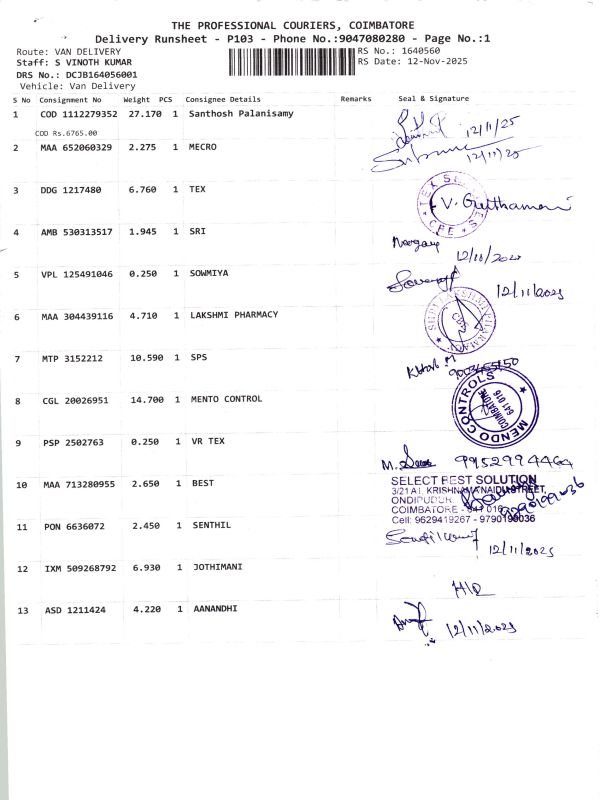 THE PROFESSIONAL COURIERS, COIMBATORE
Delivery Runsheet - P103 - Phone No.:9047080280 - Page No.:1
Route: VAN DELIVERY
RS No.: 1640560
Staff: S VINOTH KUMAR
RS Date: 12-Nov-2025
DRS No.: DCJB164056001
Vehicle: Van Delivery
S No Consignment No Weight PCS Consignee Details Remarks Seal & Signature
1 COD 1112279352 27.170 1 Santhosh Palanisamy 12/11/25
COD Rs.6765.00
2 MAA 652060329 2.275 1 MECRO 12/11/25
3 DDG 1217480 6.760 1 TEX V. Gutthamani
4 AMB 530313517 1.945 1 SRI
5 VPL 125491046 0.250 1 SOWMIYA 12/11/2025
6 MAA 304439116 4.710 1 LAKSHMI PHARMACY
7 MTP 3152212 10.590 1 SPS
8 CGL 20026951 14.700 1 MENTO CONTROL
MENDO CONTROLS
COIMBATORE
641 016
9 PSP 2502763 0.250 1 VR TEX 9952994464
10 MAA 713280955 2.650 1 BEST
SELECT BEST SOLUTION
3/21 A1, KRISHNAMANAIDU STREET,
ONDIPUDUR,
COIMBATORE - 641 016
Cell: 9629419267 - 9790199036
11 PON 6636072 2.450 1 SENTHIL 12/11/2025
12 IXM 509268792 6.930 1 JOTHIMANI
13 ASD 1211424 4.220 1 AANANDHI 12/11/2025